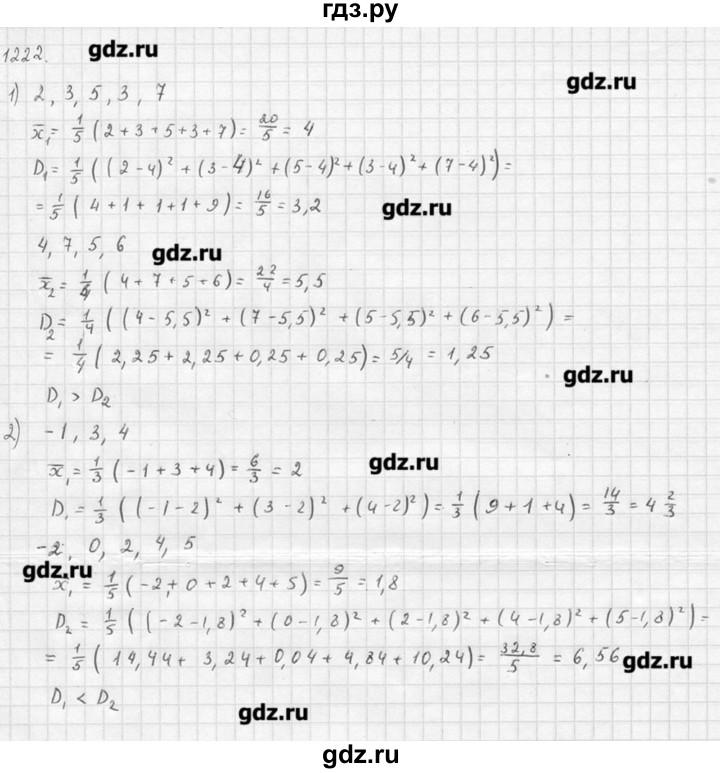 гдз.ру
1222. gdz.ru
gdz.ru
1) 2, 3, 5, 3, 7
x̄₁ = 1/5 (2+3+5+3+7) = 20/5 = 4
D₁ = 1/5 ((2-4)² + (3-4)² + (5-4)² + (3-4)² + (7-4)²) =
= 1/5 (4+1+1+1+9) = 16/5 = 3,2
gdz.ru
4, 7, 5, 6
gdz.ru
x̄₂ = 1/4 (4+7+5+6) = 22/4 = 5,5
D₂ = 1/4 ((4-5,5)² + (7-5,5)² + (5-5,5)² + (6-5,5)²) =
= 1/4 (2,25+2,25+0,25+0,25) = 5/4 = 1,25
gdz.ru
D₁ > D₂
2) -1, 3, 4
x̄₁ = 1/3 (-1+3+4) = 6/3 = 2
gdz.ru
D₁ = 1/3 ((-1-2)² + (3-2)² + (4-2)²) = 1/3 (9+1+4) = 14/3 = 4 2/3
-2, 0, 2, 4, 5
gdz.ru
x̄₁ = 1/5 (-2+0+2+4+5) = 9/5 = 1,8
D₂ = 1/5 ((-2-1,8)² + (0-1,8)² + (2-1,8)² + (4-1,8)² + (5-1,8)²) =
= 1/5 (14,44+3,24+0,04+4,84+10,24) = 32,8/5 = 6,56
gdz.ru
D₁ < D₂
gdz.ru
gdz.ru